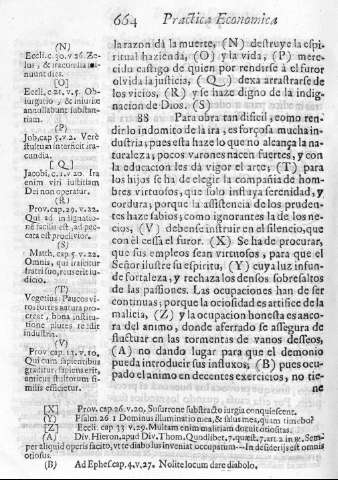 664 Practica Economica
(N)
Eccli. c. 30. v. 26. Ze-
lus, & iracundia mi-
nuunt dies.
[O]
Eccli. c. 21. v. 5. Ob-
iurgatio, & iniuriæ
annullabunt substan-
tiam.
(P)
Job, cap 5. v. 2. Verè
stultum interficit ira-
cundia.
[Q]
Jacobi, c. 1. v. 20. Ira
enim viri iustitiam
Dei non operatur.
(R)
Prov. cap. 29. v. 22.
Qui ad indignatio-
nē facilis est, ad pec-
cata est proclivior.
(S)
Matth. cap. 5. v. 22.
Omnis, qui irascitur
fratri suo, reus erit iu-
dicio.
(T)
Vegetius: Paucos vi-
ros fortes natura pro-
creat, bona institu-
tione plures reddit
industria.
(V)
Prov cap. 13. v. 20.
Qui cum sapientibus
graditur, sapiens erit,
amicus stultorum si-
milis efficietur.
la razon dà la muerte, (N) destruye la espi-
ritual hazienda, (O) y la vida, (P) mere-
cido castigo de quien por rendirse à el furor
olvida la justicia, (Q) dexa arrastrarse de
los vicios, (R) y se haze digno de la indig-
nacion de Dios. (S)
88 Para obra tan dificil, como ren-
dir lo indomito de la ira, es forçosa mucha in-
dustria; pues esta haze lo que no alcança la na-
turaleza; pocos varones nacen fuertes, y con
la educacion les dà vigor el arte; (T) para
los hijos se ha de elegir la compañia de hom-
bres virtuosos, que solo influya serenidad, y
cordura; porque la assistencia de los pruden-
tes haze sabios; como ignorantes la de los ne-
cios, (V) debense instruir en el silencio, que
con èl cessa el furor. (X) Se ha de procurar,
que sus empleos sean virtuosos, para que el
Señor ilustre su espiritu, (Y) cuya luz infun-
de fortaleza, y rechaza los densos sobresaltos
de las passiones. Las ocupaciones han de ser
continuas; porque la ociosidad es artifice de la
malicia, (Z) y la ocupacion honesta es anco-
ra del animo, donde aferrado se assegura de
fluctuar en las tormentas de vanos desseos,
(A) no dando lugar para que el demonio
pueda introducir sus influxos; (B) pues ocu-
pado el animo en decentes exercicios, no tie-
ne
[X] Prov. cap. 26. v. 20, Susurrone substracto iurgia conquiescent.
(Y) Psalm. 26. 1 Dominus illuminatio mea, & salus mea, quam timebo?
[Z] Eccli. cap 33 v. 29. Multam enim malitiam docuit otiositas.
(A) Div. Hieron. apud Div. Thom. Quodlibet. 7. quæst. 7. art. 2 in Sem-
per aliquid operis facito, vt te diabolus inveniat occupatum— In desiderijs est omnis
otiosus.
(B) Ad Ephes. cap. 4. v. 27. Nolite locum dare diabolo.